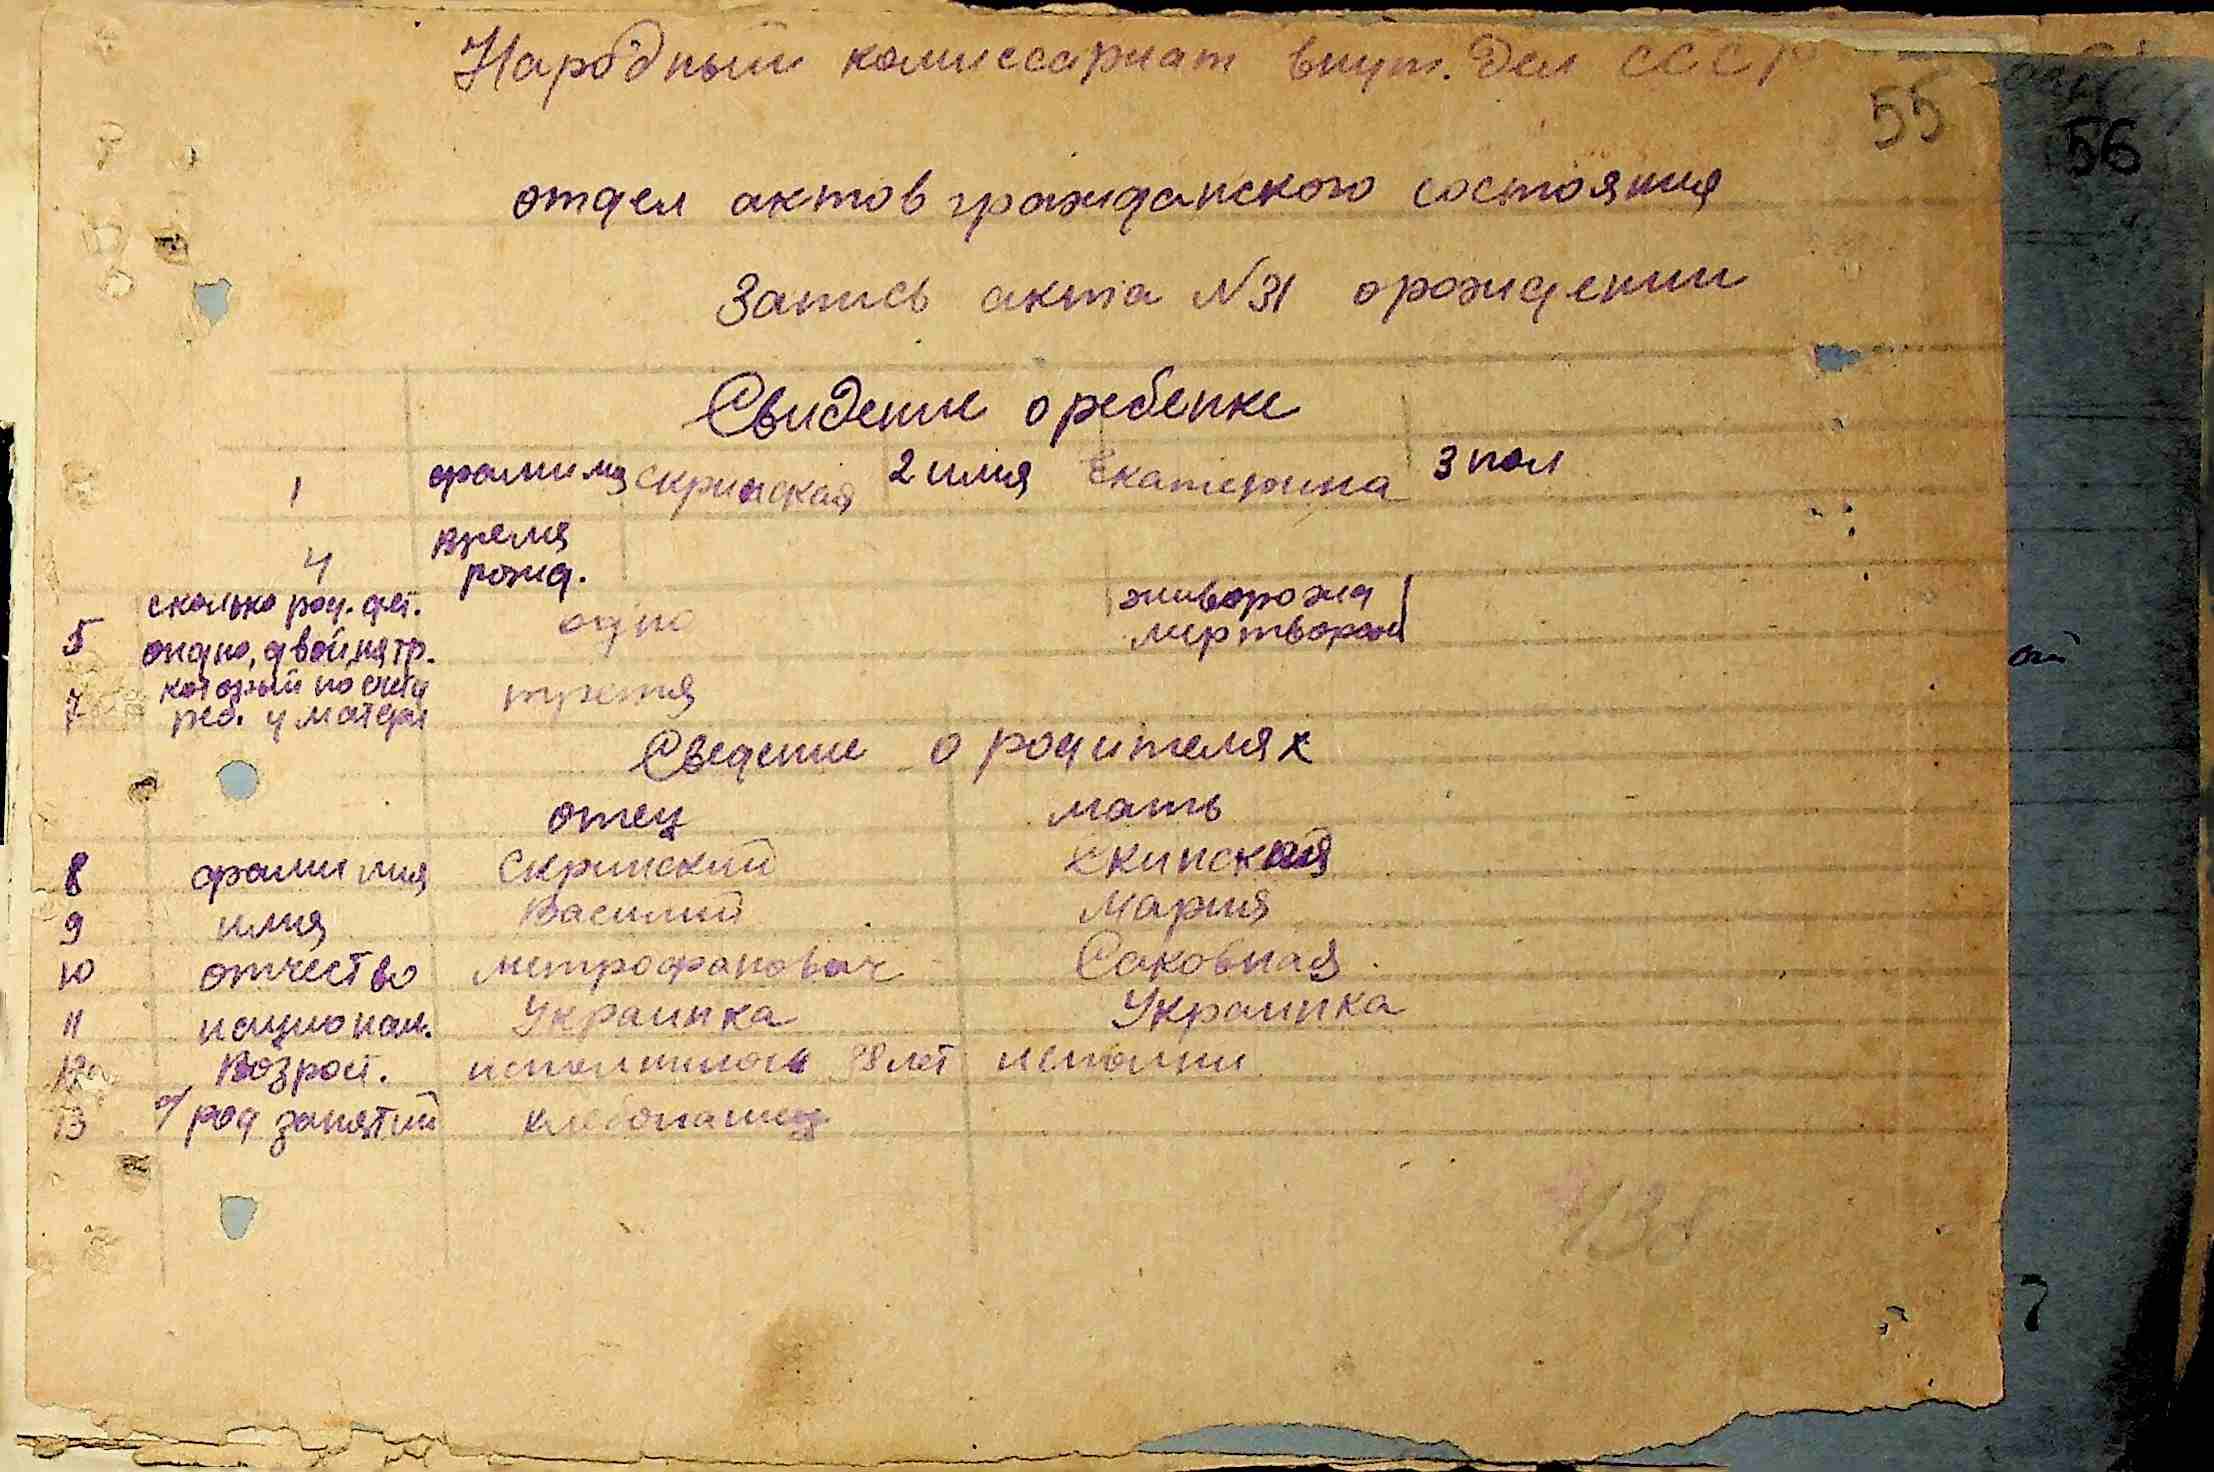 Народный комиссариат внут. дел СССР
55
56
отдел актов гражданского состояния
Запись акта N 31 о рождении
Свидение о ребенке
1 фамилия Скринская 2 имя Екатерина 3 пол
4 время рожд.
5 сколько род. дет. одно, двойня тр. одно живорожд мертворож
7 который по счету реб. у матери третя
Сведение о родителях
отец мать
8 фамилия Скринский Скинская
9 имя Василий Мария
10 отчество Митрофанович Саковная
11 национал. Украинка Украинка
12 Возраст. исполнилось лет исполни
13 а/ род занятий хлебопашец
138